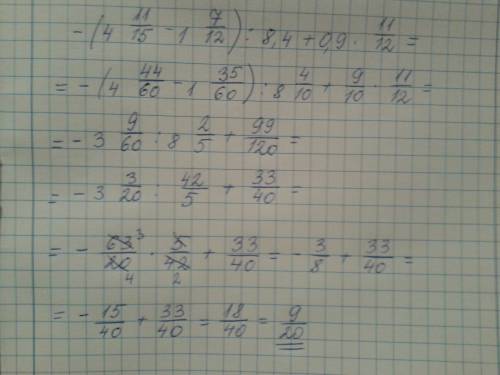 -(4 11/15 - 1 7/12) : 8,4 + 0,9 · 11/12 =
= -(4 44/60 - 1 35/60) : 8 4/10 + 9/10 · 11/12 =
= - 3 9/60 : 8 2/5 + 99/120 =
= - 3 3/20 : 42/5 + 33/40 =
= - 63 3/20 4 · 5/42 2 + 33/40 = - 3/8 + 33/40 =
= - 15/40 + 33/40 = 18/40 = 9/20